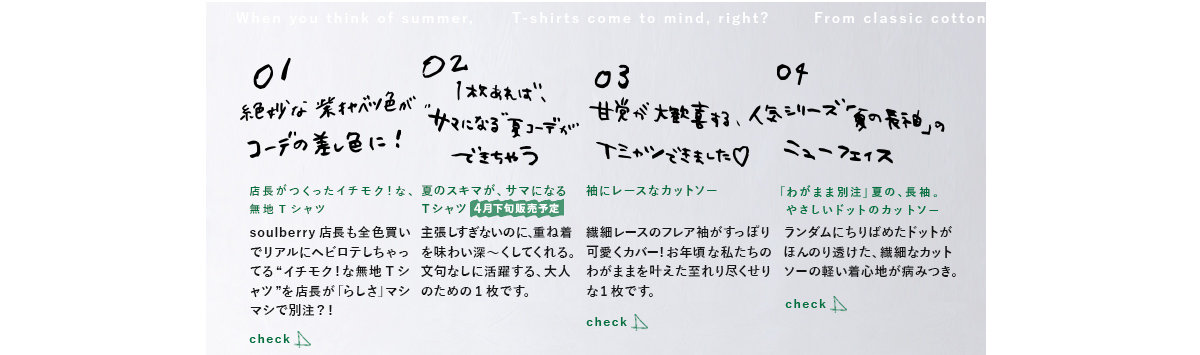 When you think of summer, T-shirts come to mind, right? From classic cotton
01
絶妙な 紫キャベツ色が
コーデの差し色に!
店長がつくったイチモク!な、
無地Tシャツ
soulberry店長も全色買い
でリアルにヘビロテしちゃっ
てる“イチモク!な無地Tシ
ャツ”を店長が「らしさ」マシ
マシで別注?!
check
02
1枚あれば、
“サマになる”夏コーデが
できちゃう
夏のスキマが、サマになる
Tシャツ 4月下旬販売予定
主張しすぎないのに、重ね着
を味わい深〜くしてくれる。
文句なしに活躍する、大人
のための1枚です。
03
甘党が大歓喜する、
Tシャツできました♡
袖にレースなカットソー
繊細レースのフレア袖がすっぽり
可愛くカバー!お年頃な私たちの
わがままを叶えた至れり尽くせり
な1枚です。
check
04
人気シリーズ「夏の長袖」の
ニューフェイス
「わがまま別注」夏の、長袖。
やさしいドットのカットソー
ランダムにちりばめたドットが
ほんのり透けた、繊細なカット
ソーの軽い着心地が病みつき。
check